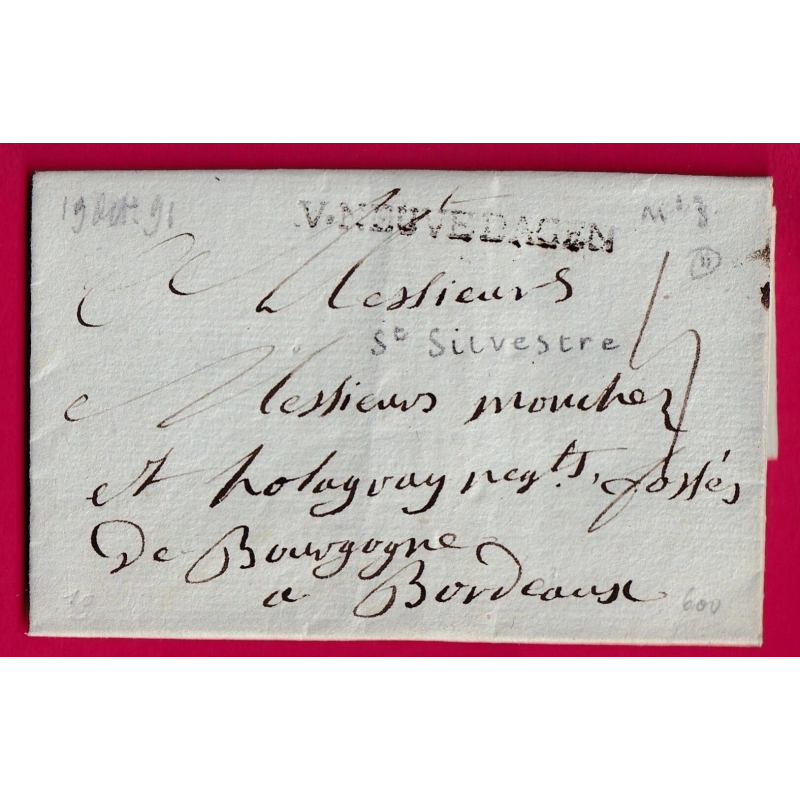 19 Oct. 91
V.NEUVE DAGEN
M^d 8
11
Messieurs
St Silvestre
Messieurs mouchez
et holagray negts, fossés
De Bourgogne
a Bordeaux
12
600